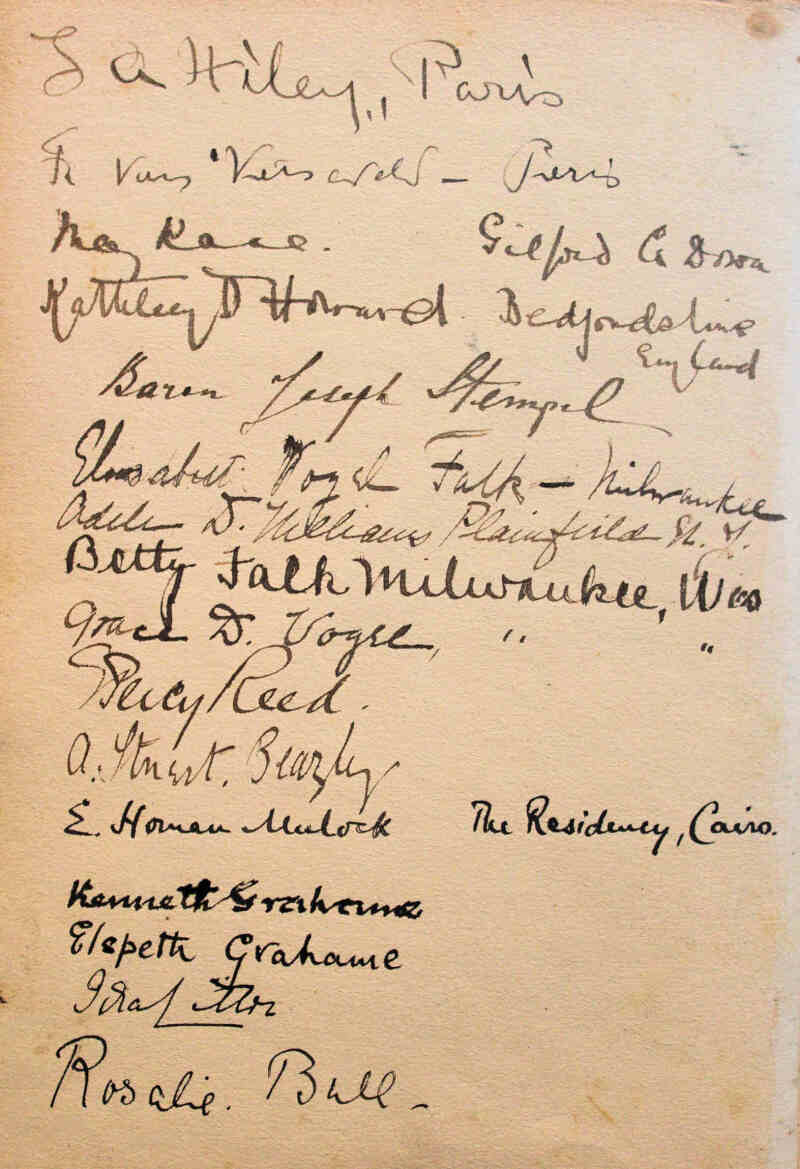 Hiley, Paris
Fr van
May Kane. Gilford Co Down
Kathleen D Howard. Bedfordshire
England
Baron Joseph Stempel
Elisabeth Vogel Falk - Milwaukee
Adele D. Williams Plainfield N. J.
Betty Falk Milwaukee, Wis
Grace D. Vogel, " "
Percy Reed.
A. Stuart. Beazley
E. Homan Mulock The Residency, Cairo.
Kenneth Grahame
Elspeth Grahame
Rosalie. Bull -